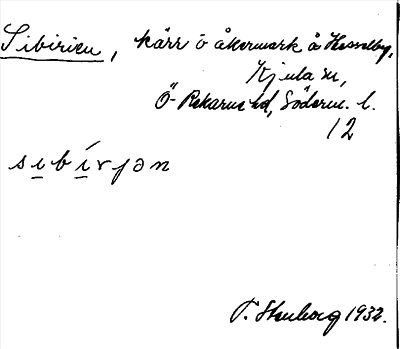 Sibirien, kärr o åkermark å Hesselby,
Kjula sn,
Ö-Rekarne hd, Söderm. l.
12
sibírjən
T. Stenborg 1932.